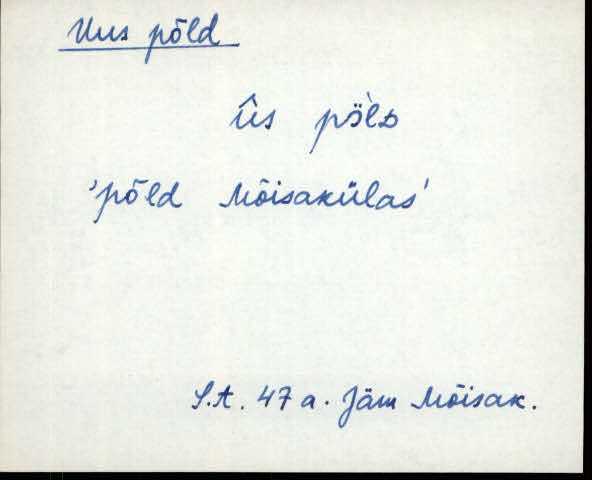 Uus põld
ûs pö̀lᴅ
'põld Mõisakülas'
S.A. 47 a. Jäm Mõisak.